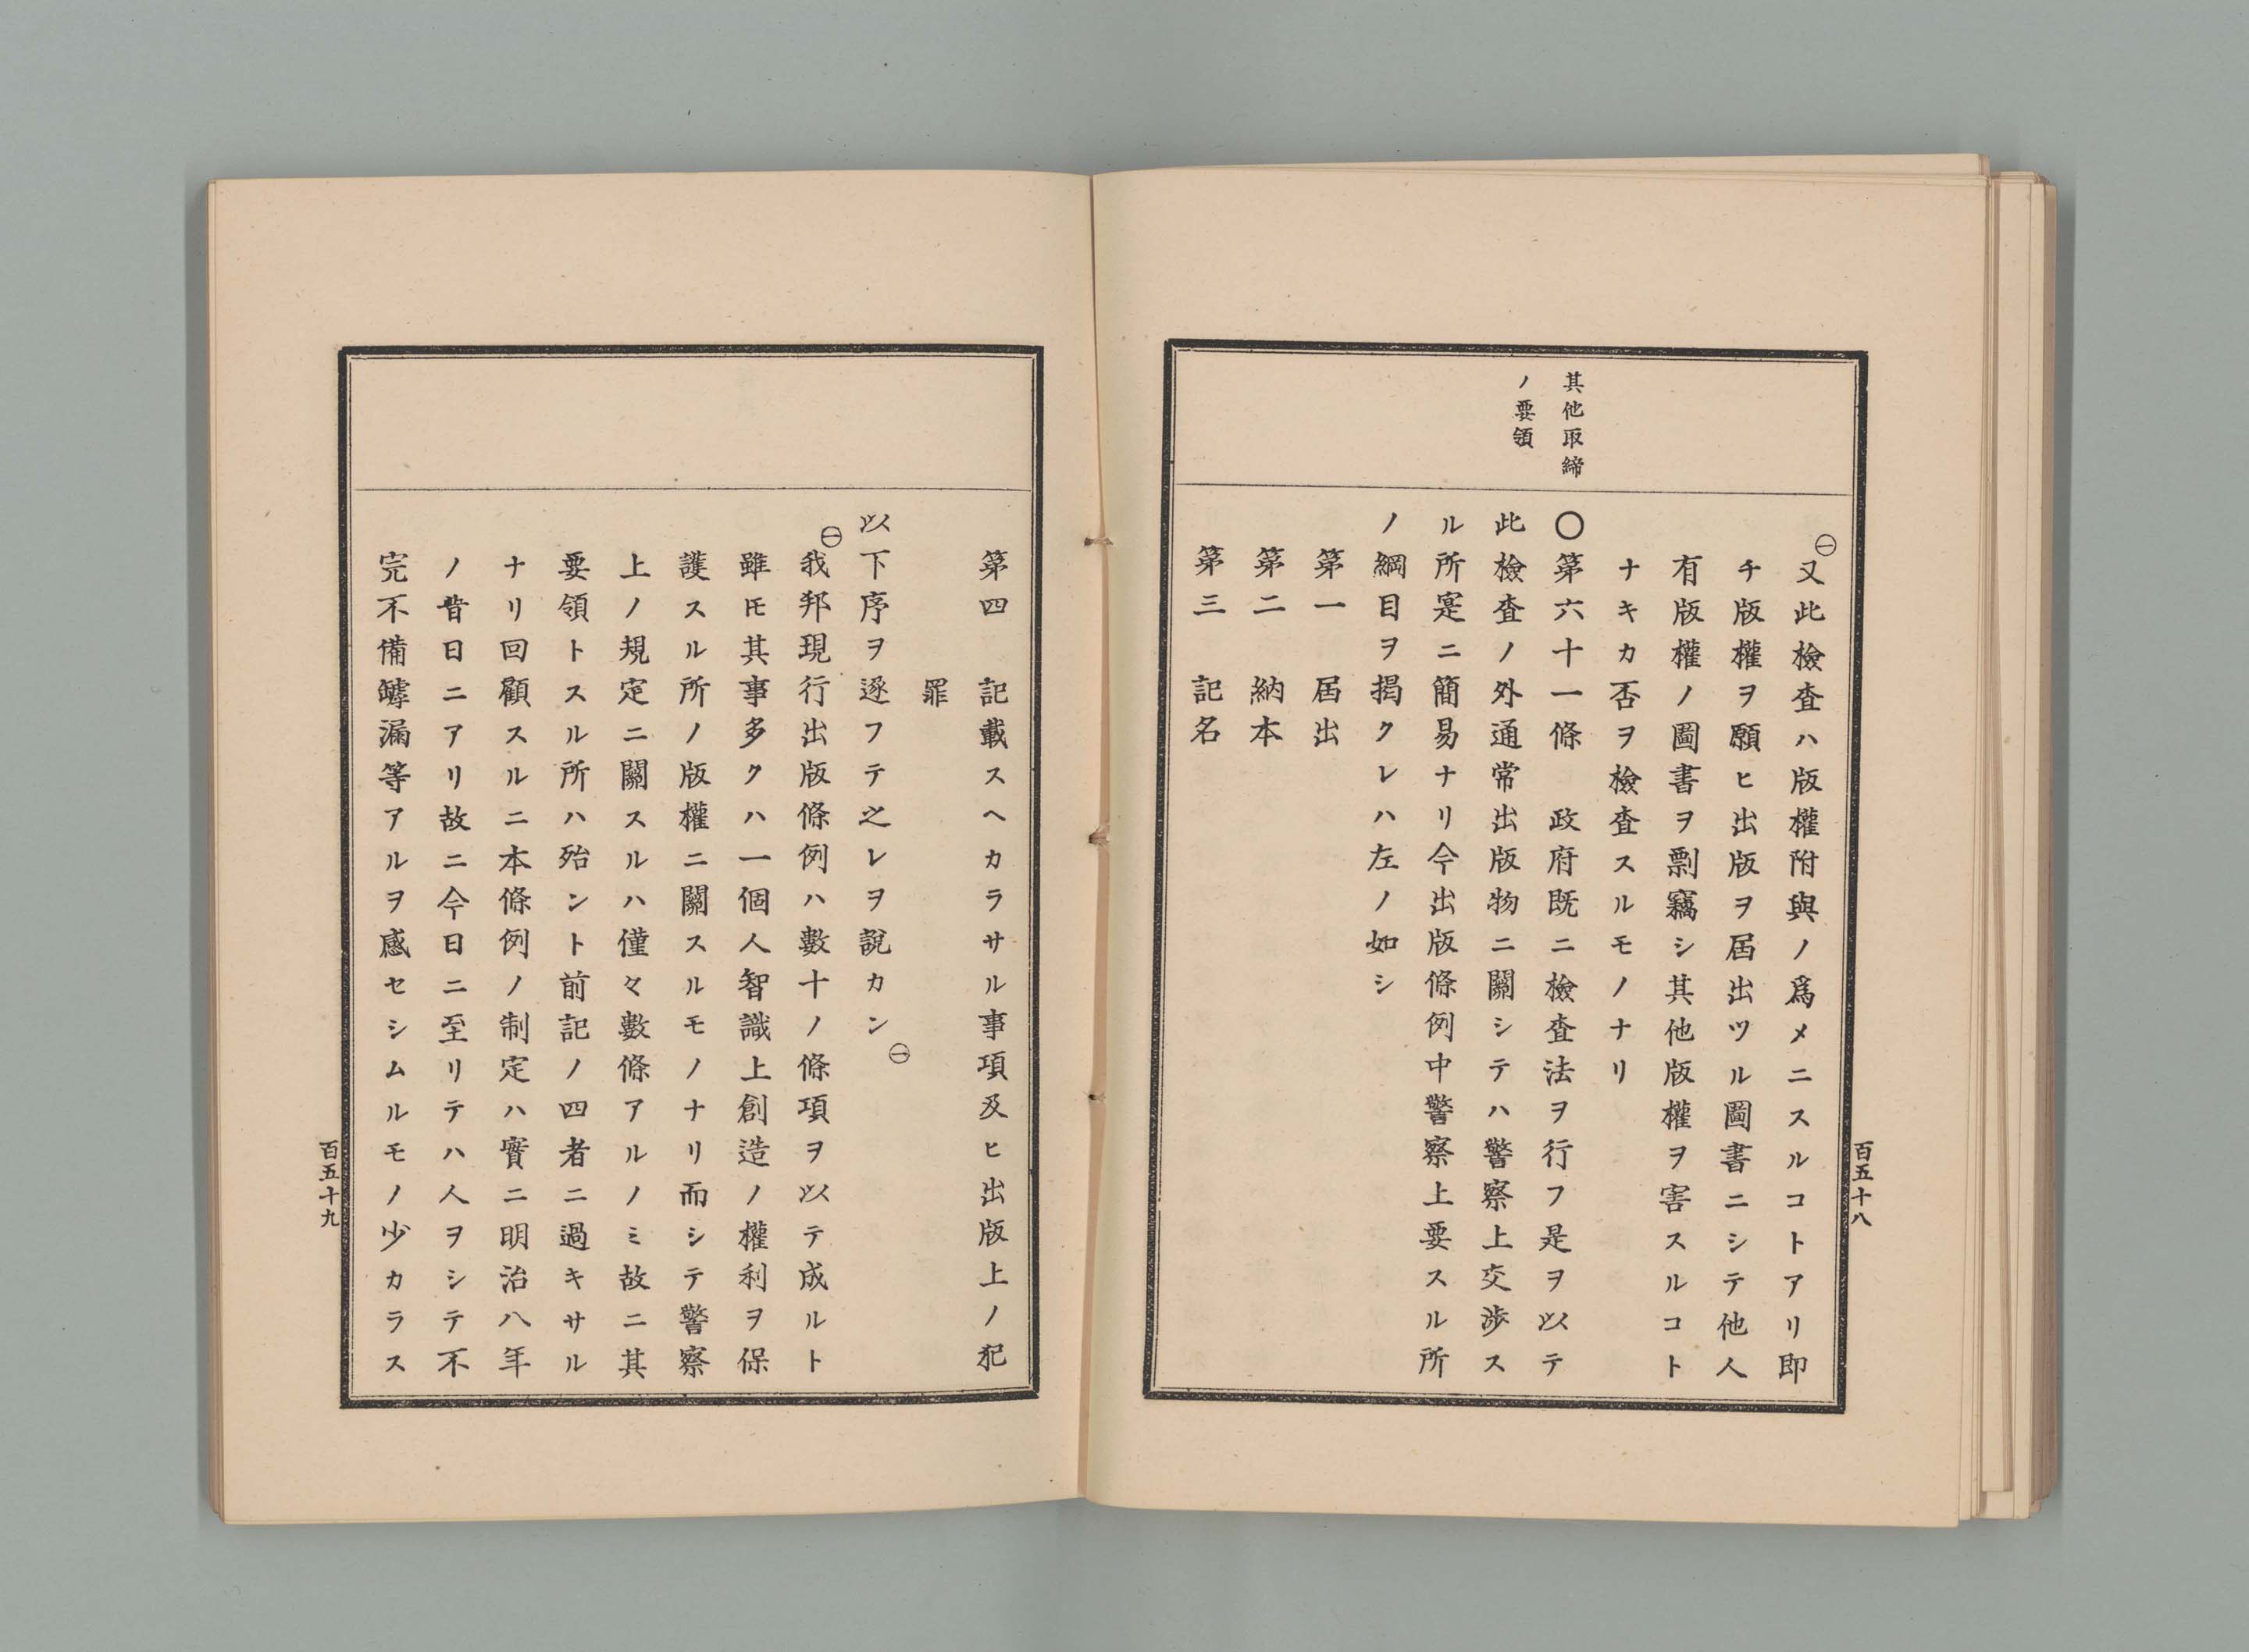 其他取締
ノ要領
㊀又此檢査ハ版權附與ノ爲メニスルコトアリ即
チ版權ヲ願ヒ出版ヲ屆出ツル圖書ニシテ他人
有版權ノ圖書ヲ剽竊シ其他版權ヲ害スルコト
ナキカ否ヲ檢査スルモノナリ
〇第六十一條　政府既ニ檢査法ヲ行フ是ヲ以テ
此檢査ノ外通常出版物ニ關シテハ警察上交渉ス
ル所寔ニ簡易ナリ今出版條例中警察上要スル所
ノ綱目ヲ揭クレハ左ノ如シ
第一　屆出
第二　納本
第三　記名
百五十八
第四　記載スヘカラサル事項及ヒ出版上ノ犯
罪
以下序ヲ逐フテ之レヲ說カン㊀
㊀我邦現行出版條例ハ數十ノ條項ヲ以テ成ルト
雖𪜈其事多クハ一個人智識上創造ノ權利ヲ保
護スル所ノ版權ニ關スルモノナリ而シテ警察
上ノ規定ニ關スルハ僅々數條アルノミ故ニ其
要領トスル所ハ殆ント前記ノ四者ニ過キサル
ナリ回顧スルニ本條例ノ制定ハ實ニ明治八年
ノ昔日ニアリ故ニ今日ニ至リテハ人ヲシテ不
完不備罅漏等アルヲ感セシムルモノ少カラス
百五十九